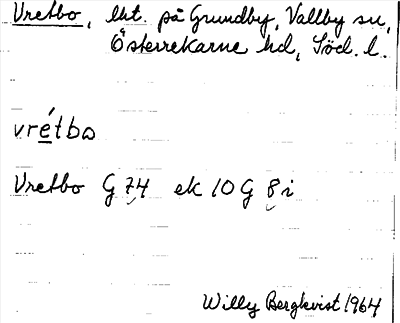 Vretbo, lht. på Grundby, Vallby sn,
Österrekarne hd, Söd. l.
vrétbω
Vretbo G 74 ek 10 G 8i
Willy Bergkvist 1964